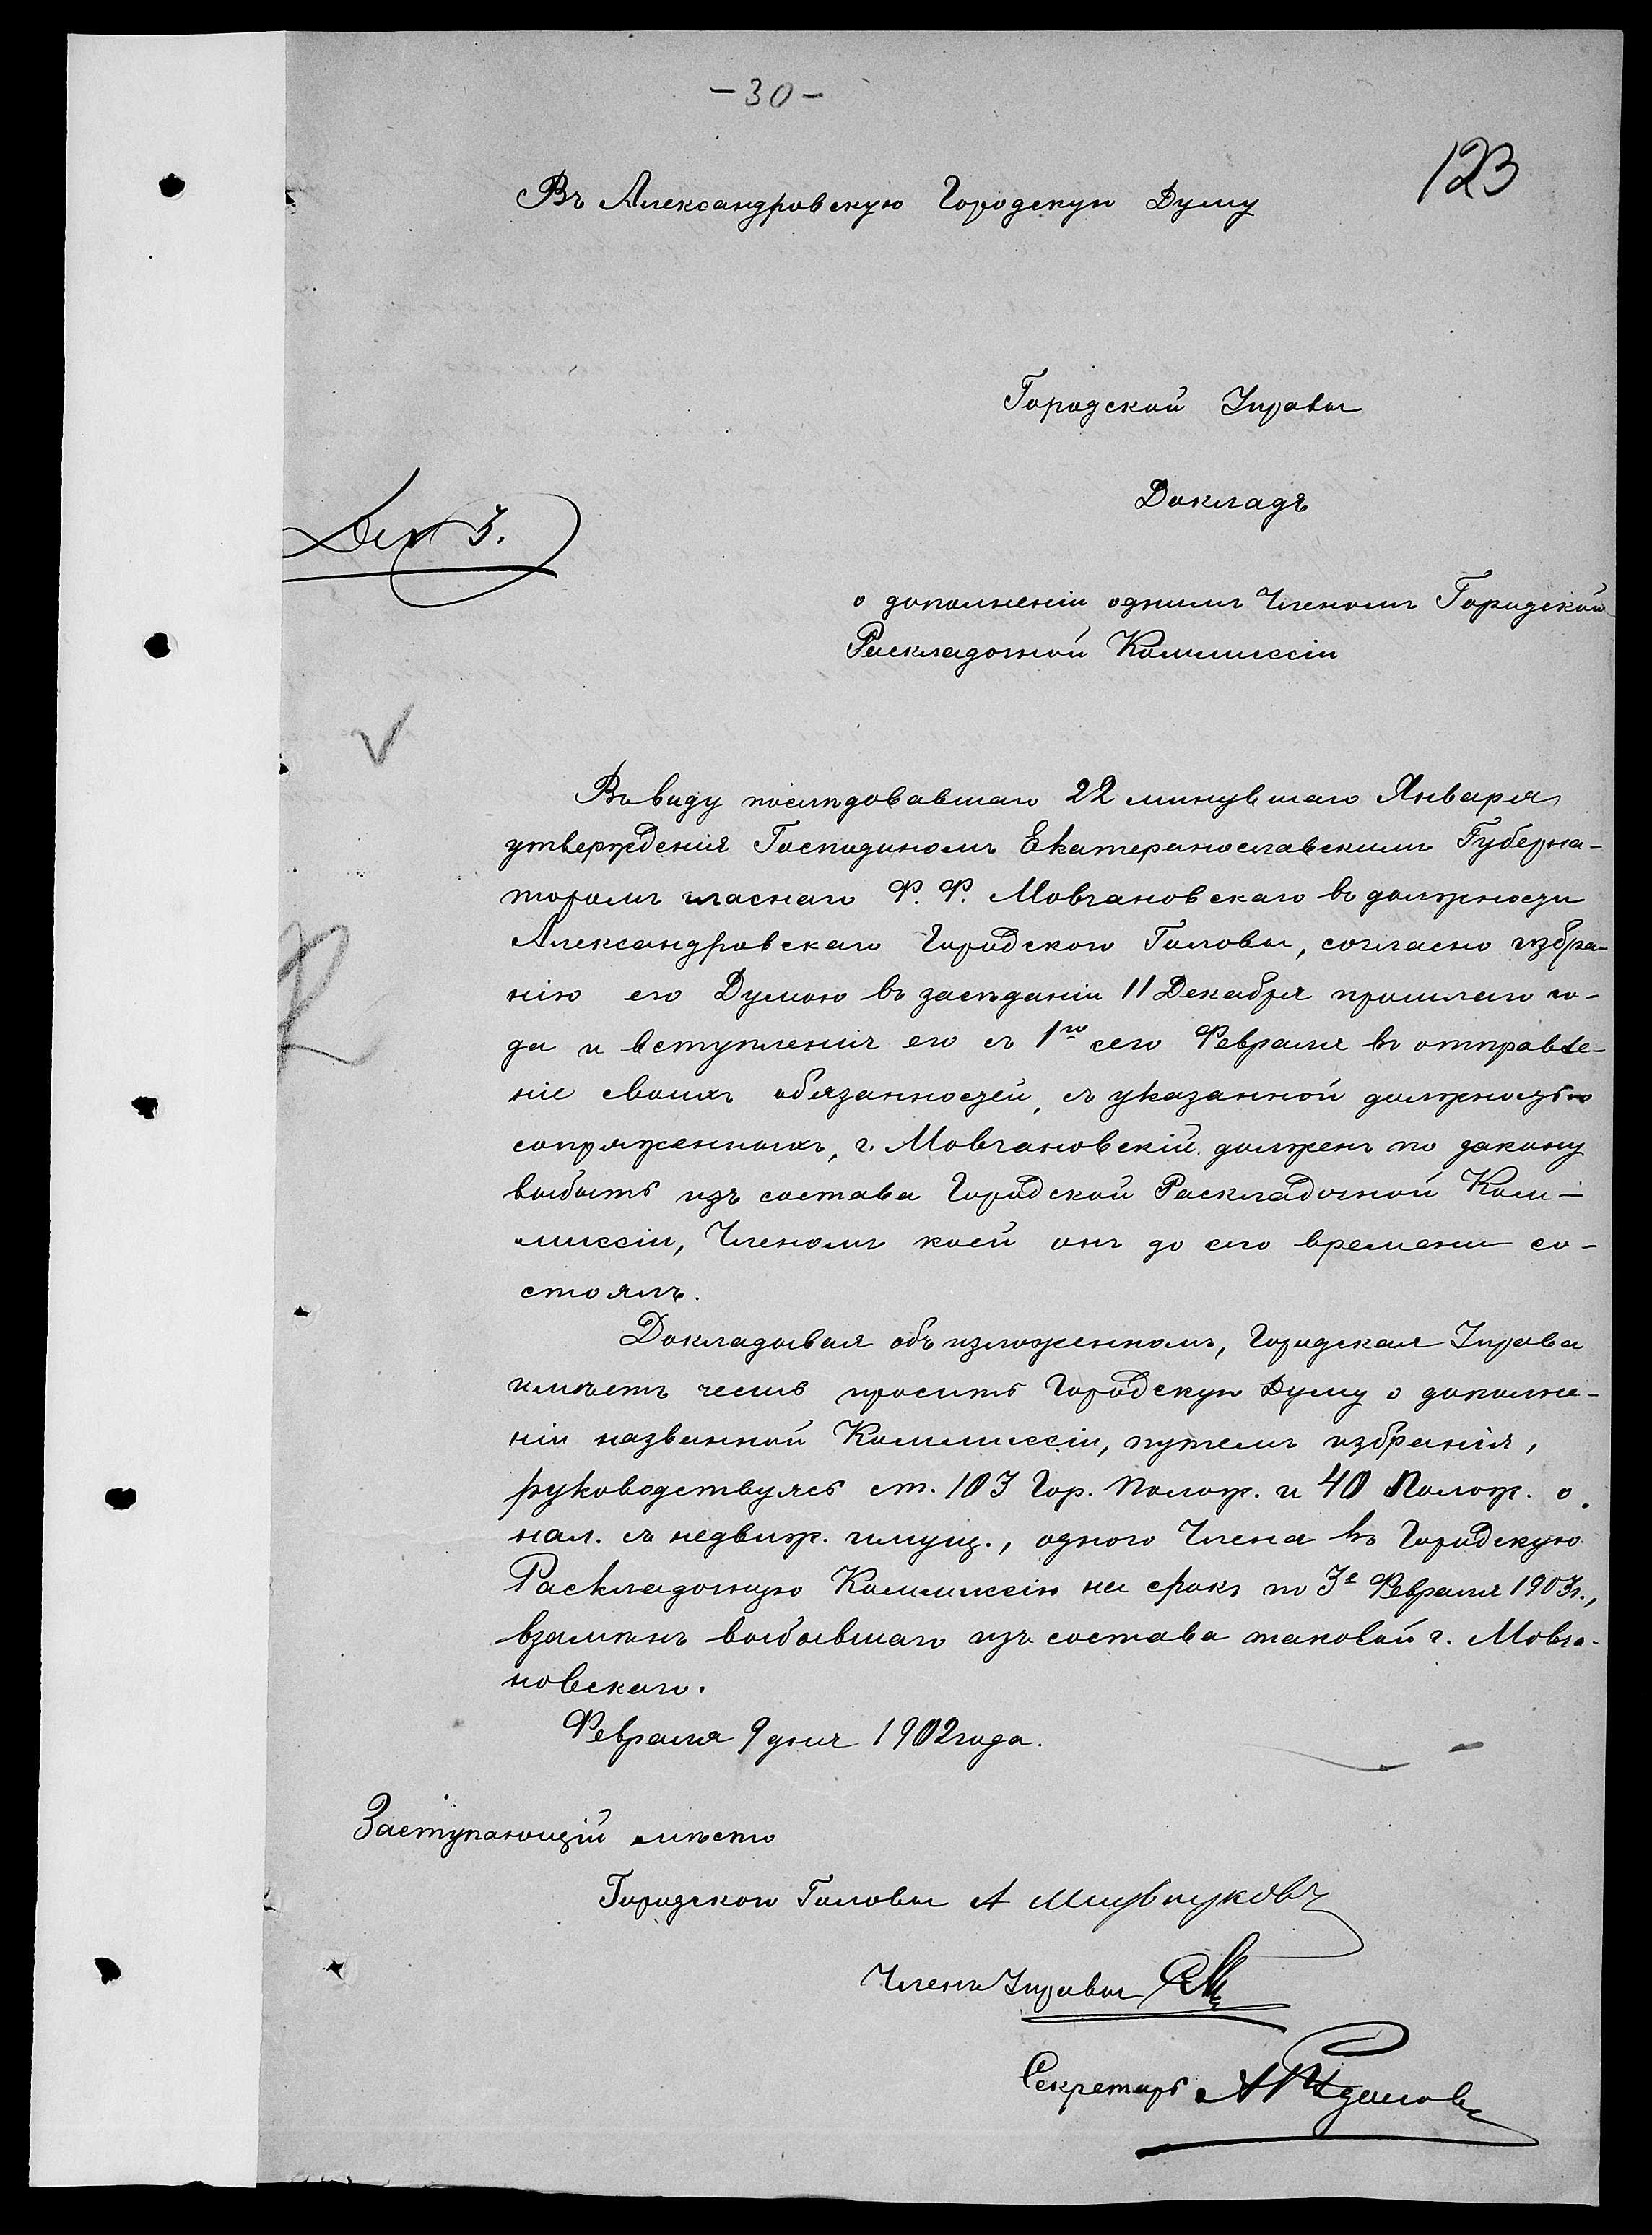 -30-
123
Въ Александровскую Городскую Думу
Городской Управы
Докладъ
о дополненіи однимъ Членомъ Городской
Раскладочной Коммиссіи
Въ виду послѣдовавшаго 22 минувшаго Января
утвержденія Господиномъ Екатеринославскимъ Губерна-
торомъ гласнаго Ф. Ф. Мовчановскаго въ должности
Александровскаго Городского Головы, согласно избра-
нію его Думою въ засѣданіи 11 Декабря прошлаго го-
да и вступленія его съ 1го сего Февраля въ отправле-
ніе своихъ обязанностей, съ указанной должностью
сопряженныхъ, г. Мовчановскій должен по закону
выбыть изъ состава Городской Раскладочной Ком-
миссіи, Членомъ коей онъ до сего времени со-
стоялъ.
Докладывая объ изложенномъ, Городская Управа
имѣетъ честь просить Городскую Думу о дополне-
ніи названной Коммиссіи, путемъ избранія,
руководствуясь ст. 103 Гор. Полож. и 40 Полож. о
нал. съ недвиж. имущ., одного Члена въ Городскую
Раскладочную Коммиссію на срокъ по 3е Февраля 1903г.,
взамѣнъ выбывшаго изъ состава таковой г. Мовча-
новскаго.
Февраля 9 дня 1902 года.
Заступающій мѣсто
Городского Головы А
Членъ Управы
Секретарь А